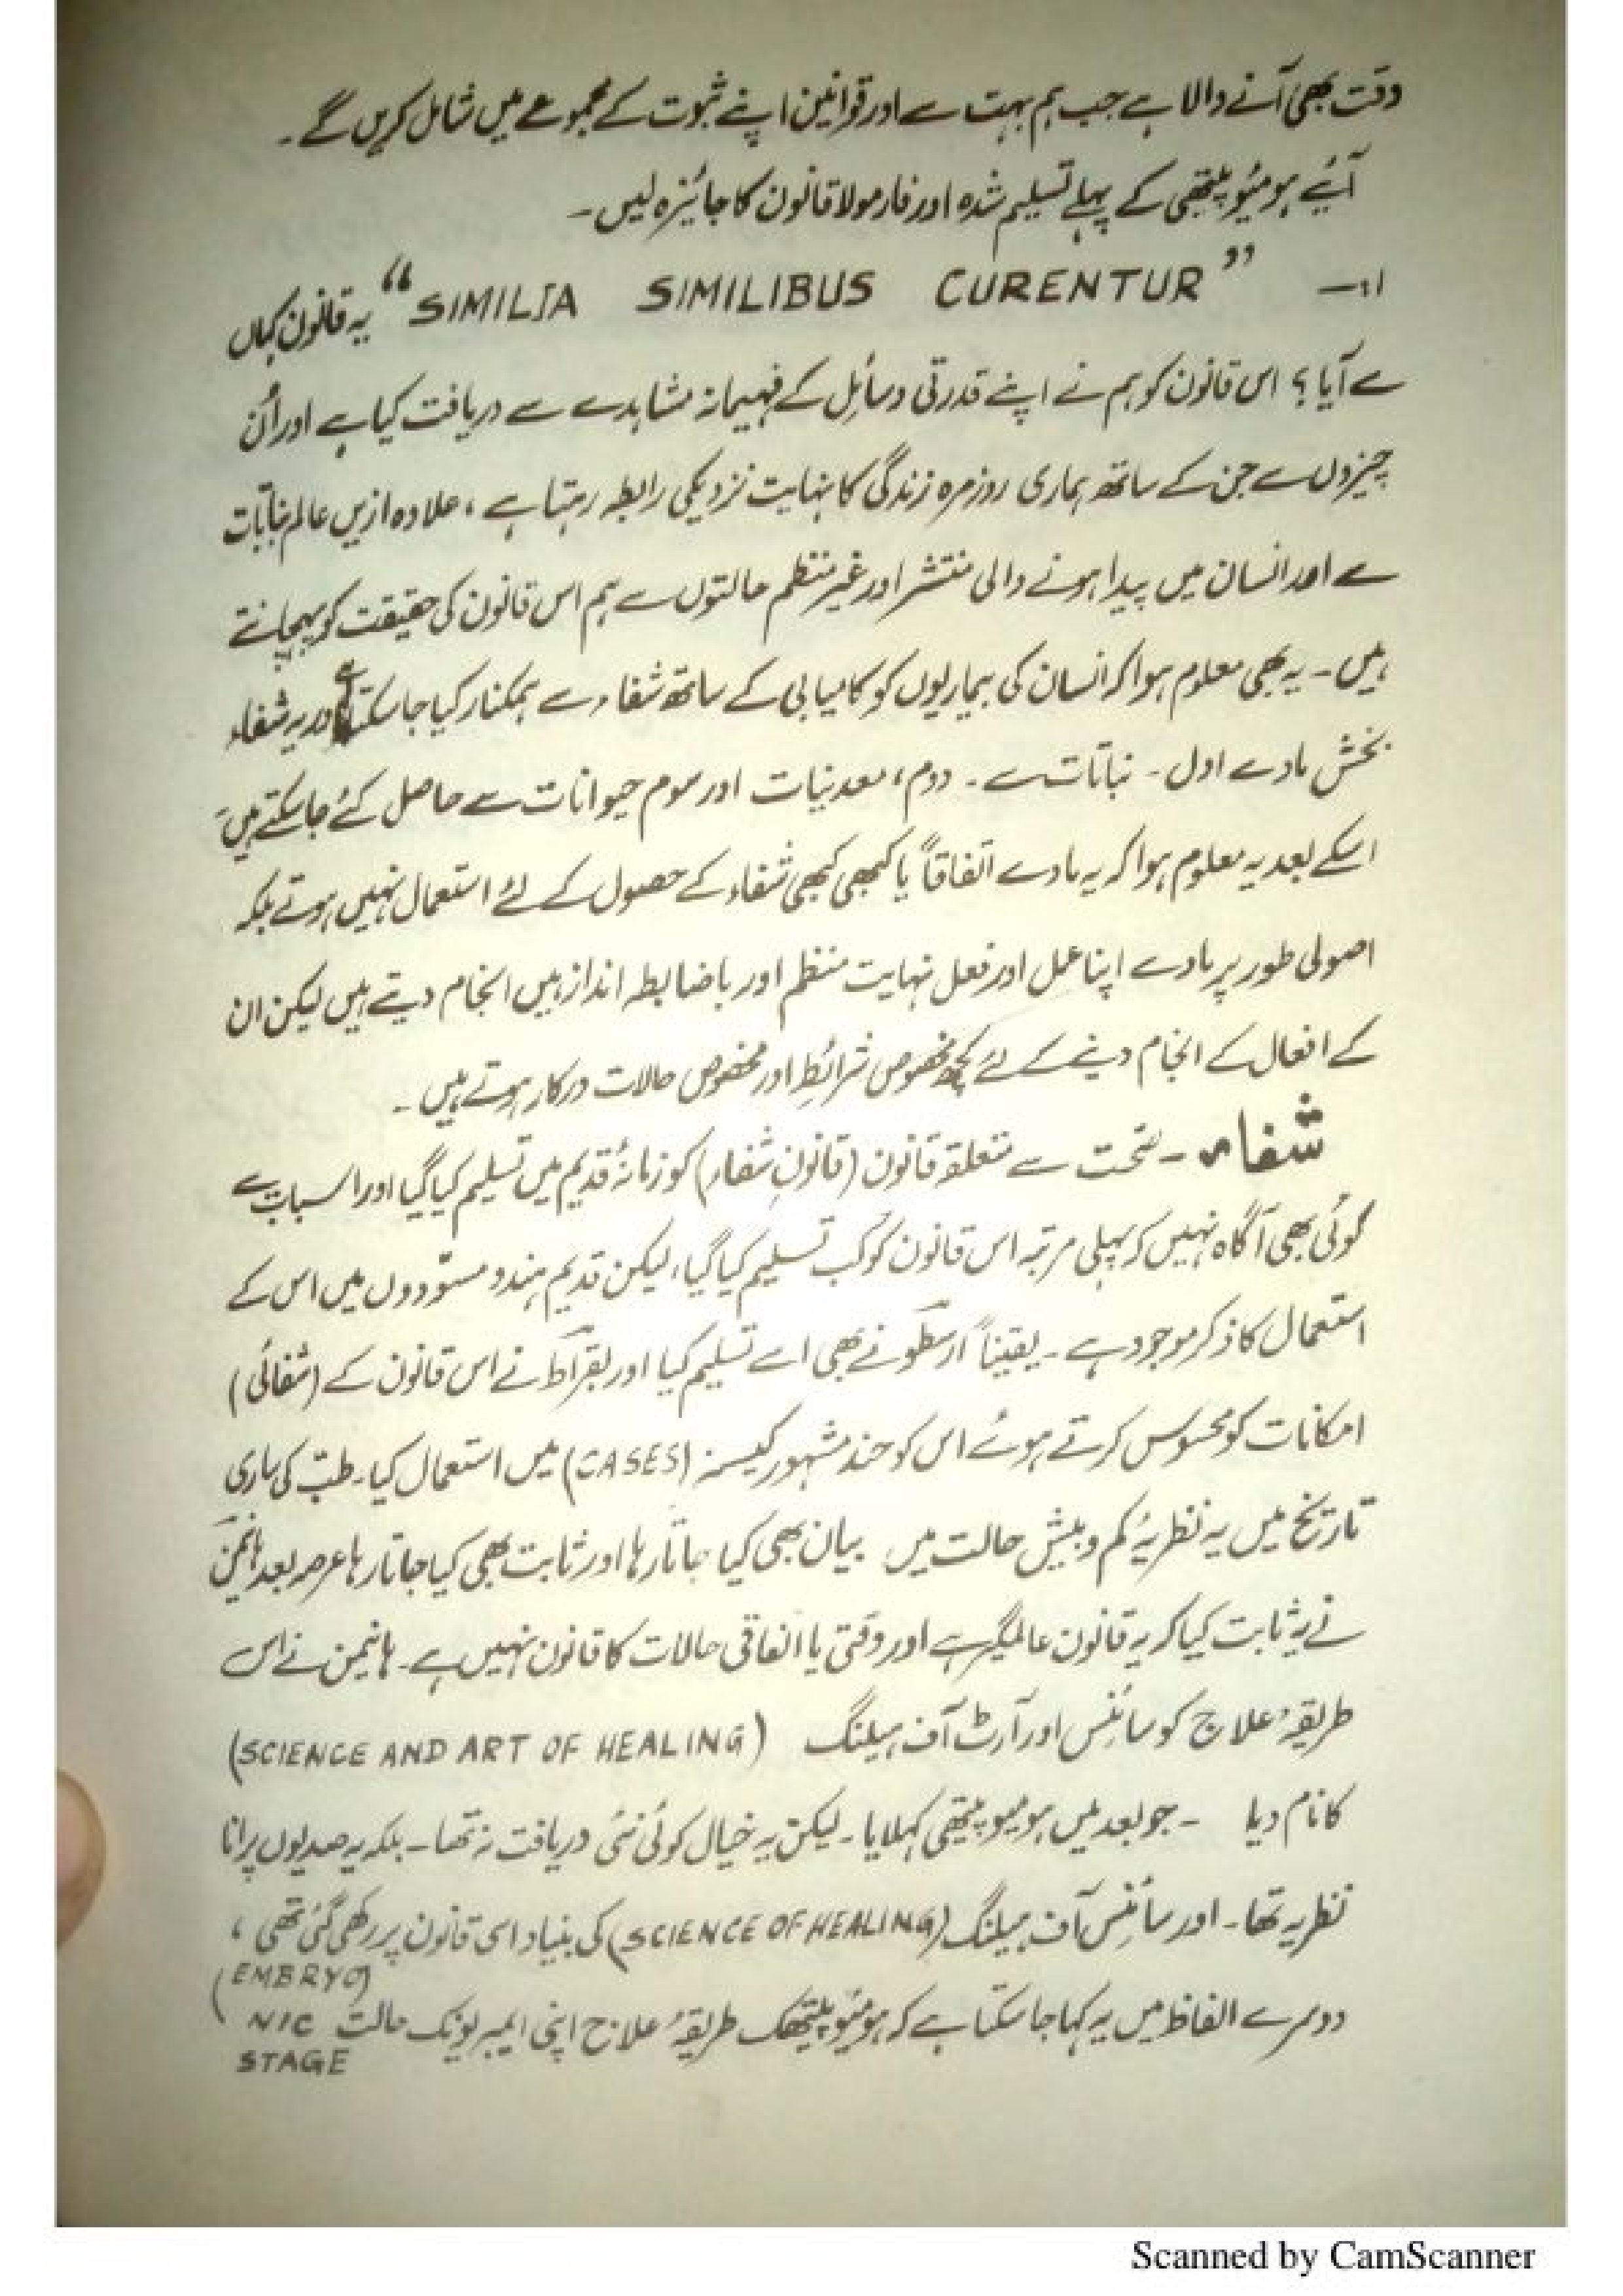 وقت بھی آنے والا ہے جب ہم بہت سے اور قوانین اپنے ثبوت کے مجموعے میں شامل کریں گے۔
آیئے ہومیوپیتھی کے پہلے تسلیم شدہ اور فارمولا قانون کا جائزہ لیں۔
۱۱— "SIMILIA SIMILIBUS CURENTUR" یہ قانون کہاں
سے آیا؟ اس قانون کو ہم نے اپنے قدرتی وسائل کے فہیمانہ مشاہدے سے دریافت کیا ہے اور اُن
چیزوں سے جن کے ساتھ ہماری روزمرہ زندگی کا نہایت نزدیکی رابطہ رہتا ہے، علاوہ ازیں عالم نباتات
سے اور انسان میں پیدا ہونے والی منتشر اور غیر منظم حالتوں سے ہم اس قانون کی حقیقت کو پہچانتے
ہیں۔ یہ بھی معلوم ہوا کہ انسان کی بیماریوں کو کامیابی کے ساتھ شفاء سے ہمکنار کیا جا سکتا ہے اور یہ شفاء
بخش مادے اول۔ نباتات سے۔ دوم، معدنیات اور سوم حیوانات سے حاصل کئے جا سکتے ہیں
اسکے بعد یہ معلوم ہوا کہ یہ مادے اتفاقاً یا کبھی کبھی شفاء کے حصول کے لئے استعمال نہیں ہوتے بلکہ
اصولی طور پر مادے اپنا عمل اور فعل نہایت منظم اور باضابطہ انداز میں انجام دیتے ہیں لیکن ان
کے افعال کے انجام دینے کے لئے کچھ مخصوص شرائط اور مخصوص حالات درکار ہوتے ہیں۔
شفاء۔ صحت سے متعلقہ قانون (قانونِ شفاء) کو زمانۂ قدیم میں تسلیم کیا گیا اور اس بات سے
کوئی بھی آگاہ نہیں کہ پہلی مرتبہ اس قانون کو کب تسلیم کیا گیا، لیکن قدیم ہندو مسودوں میں اس کے
استعمال کا ذکر موجود ہے۔ یقیناً ارسطو نے بھی اسے تسلیم کیا اور بقراط نے اس قانون کے (شفائی)
امکانات کو محسوس کرتے ہوئے اس کو چند مشہور کیسز (CASES) میں استعمال کیا۔ طب کی ساری
تاریخ میں یہ نظریہ کم و بیش حالت میں بیان بھی کیا جاتا رہا اور ثابت بھی کیا جاتا رہا عرصہ بعد ہانیمن
نے یہ ثابت کیا کہ یہ قانون عالمگیر ہے اور وقتی یا اتفاقی حالات کا قانون نہیں ہے۔ ہانیمن نے اس
طریقۂ علاج کو سائنس اور آرٹ آف ہیلنگ (SCIENCE AND ART OF HEALING)
کا نام دیا ۔ جو بعد میں ہومیوپیتھی کہلایا۔ لیکن یہ خیال کوئی نئی دریافت نہ تھا۔ بلکہ یہ صدیوں پرانا
نظریہ تھا۔ اور سائنس آف ہیلنگ (SCIENCE OF HEALING) کی بنیاد اسی قانون پر رکھی گئی تھی،
دوسرے الفاظ میں یہ کہا جا سکتا ہے کہ ہومیوپیتھک طریقۂ علاج اپنی ایمبریونک حالت (EMBRYO
NIC
STAGE
Scanned by CamScanner